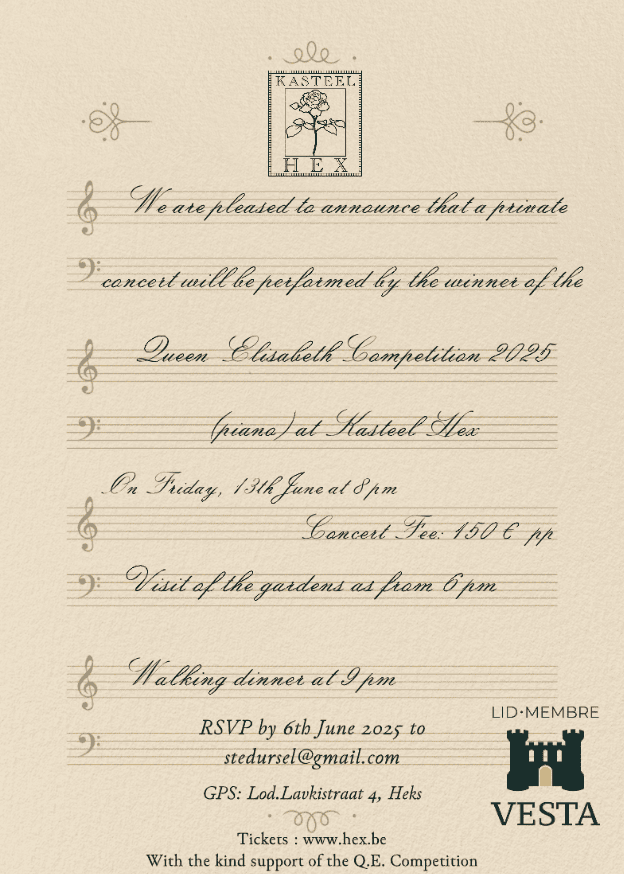 KASTEEL
HEX
We are pleased to announce that a private
concert will be performed by the winner of the
Queen Elisabeth Competition 2025
(piano) at Kasteel Hex
On Friday, 13th June at 8 pm
Concert Fee: 150 € pp
Visit of the gardens as from 6 pm
Walking dinner at 9 pm
RSVP by 6th June 2025 to
stedursel@gmail.com
GPS: Lod.Lavkistraat 4, Heks
LID·MEMBRE
VESTA
Tickets : www.hex.be
With the kind support of the Q.E. Competition